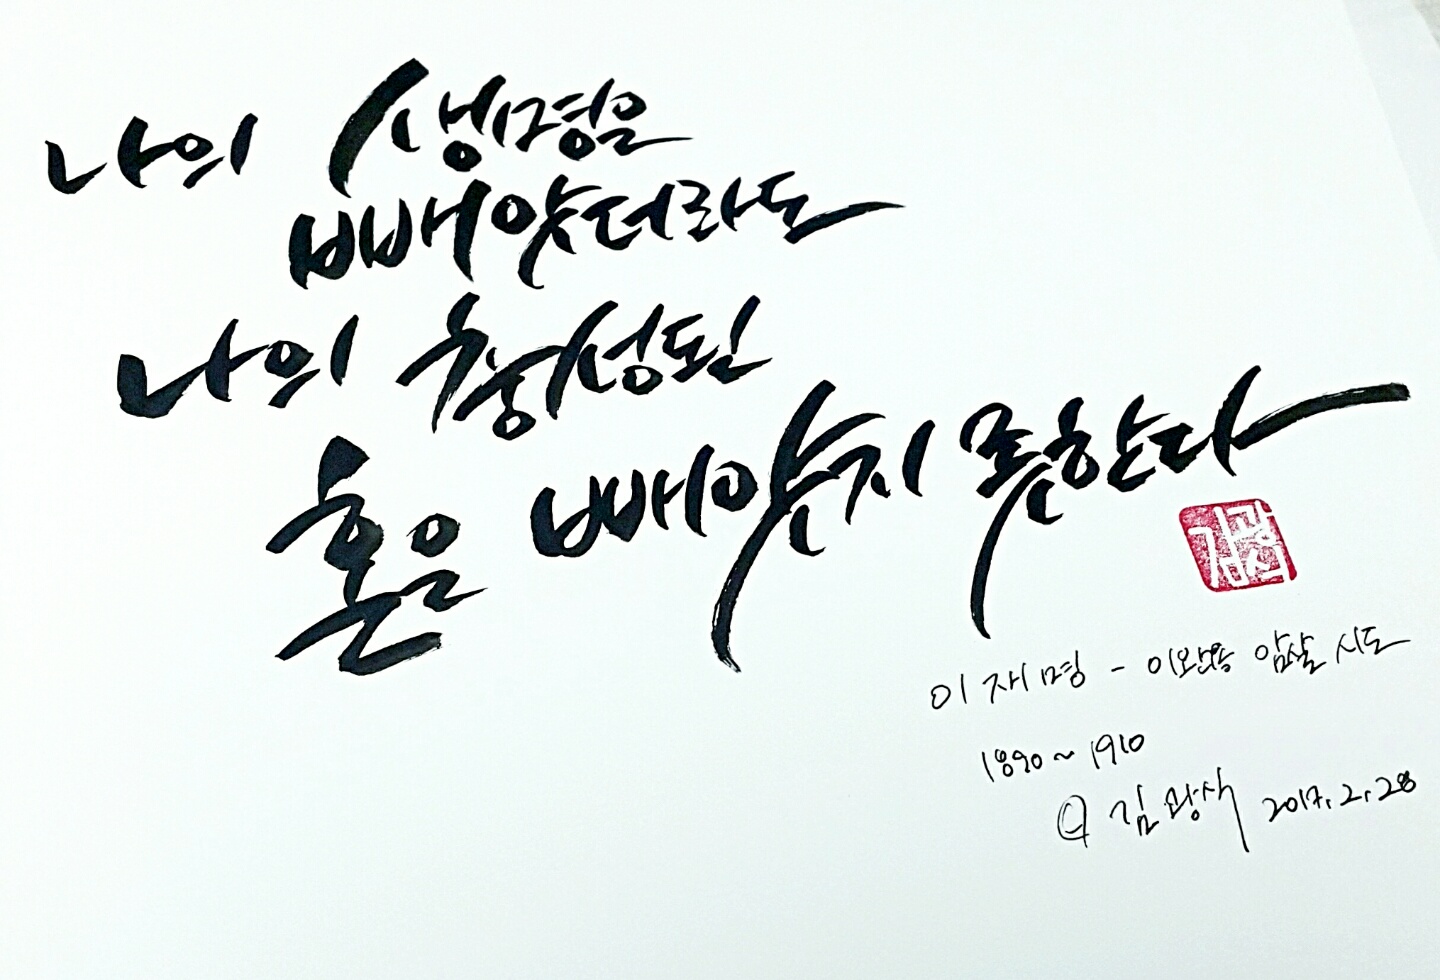 나의 생명은
빼앗더라도
나의 충성된
혼은 빼앗지 못한다
김광석
이재명 - 이완용 암살 시도
1890~1910
김광석 2017.2.28